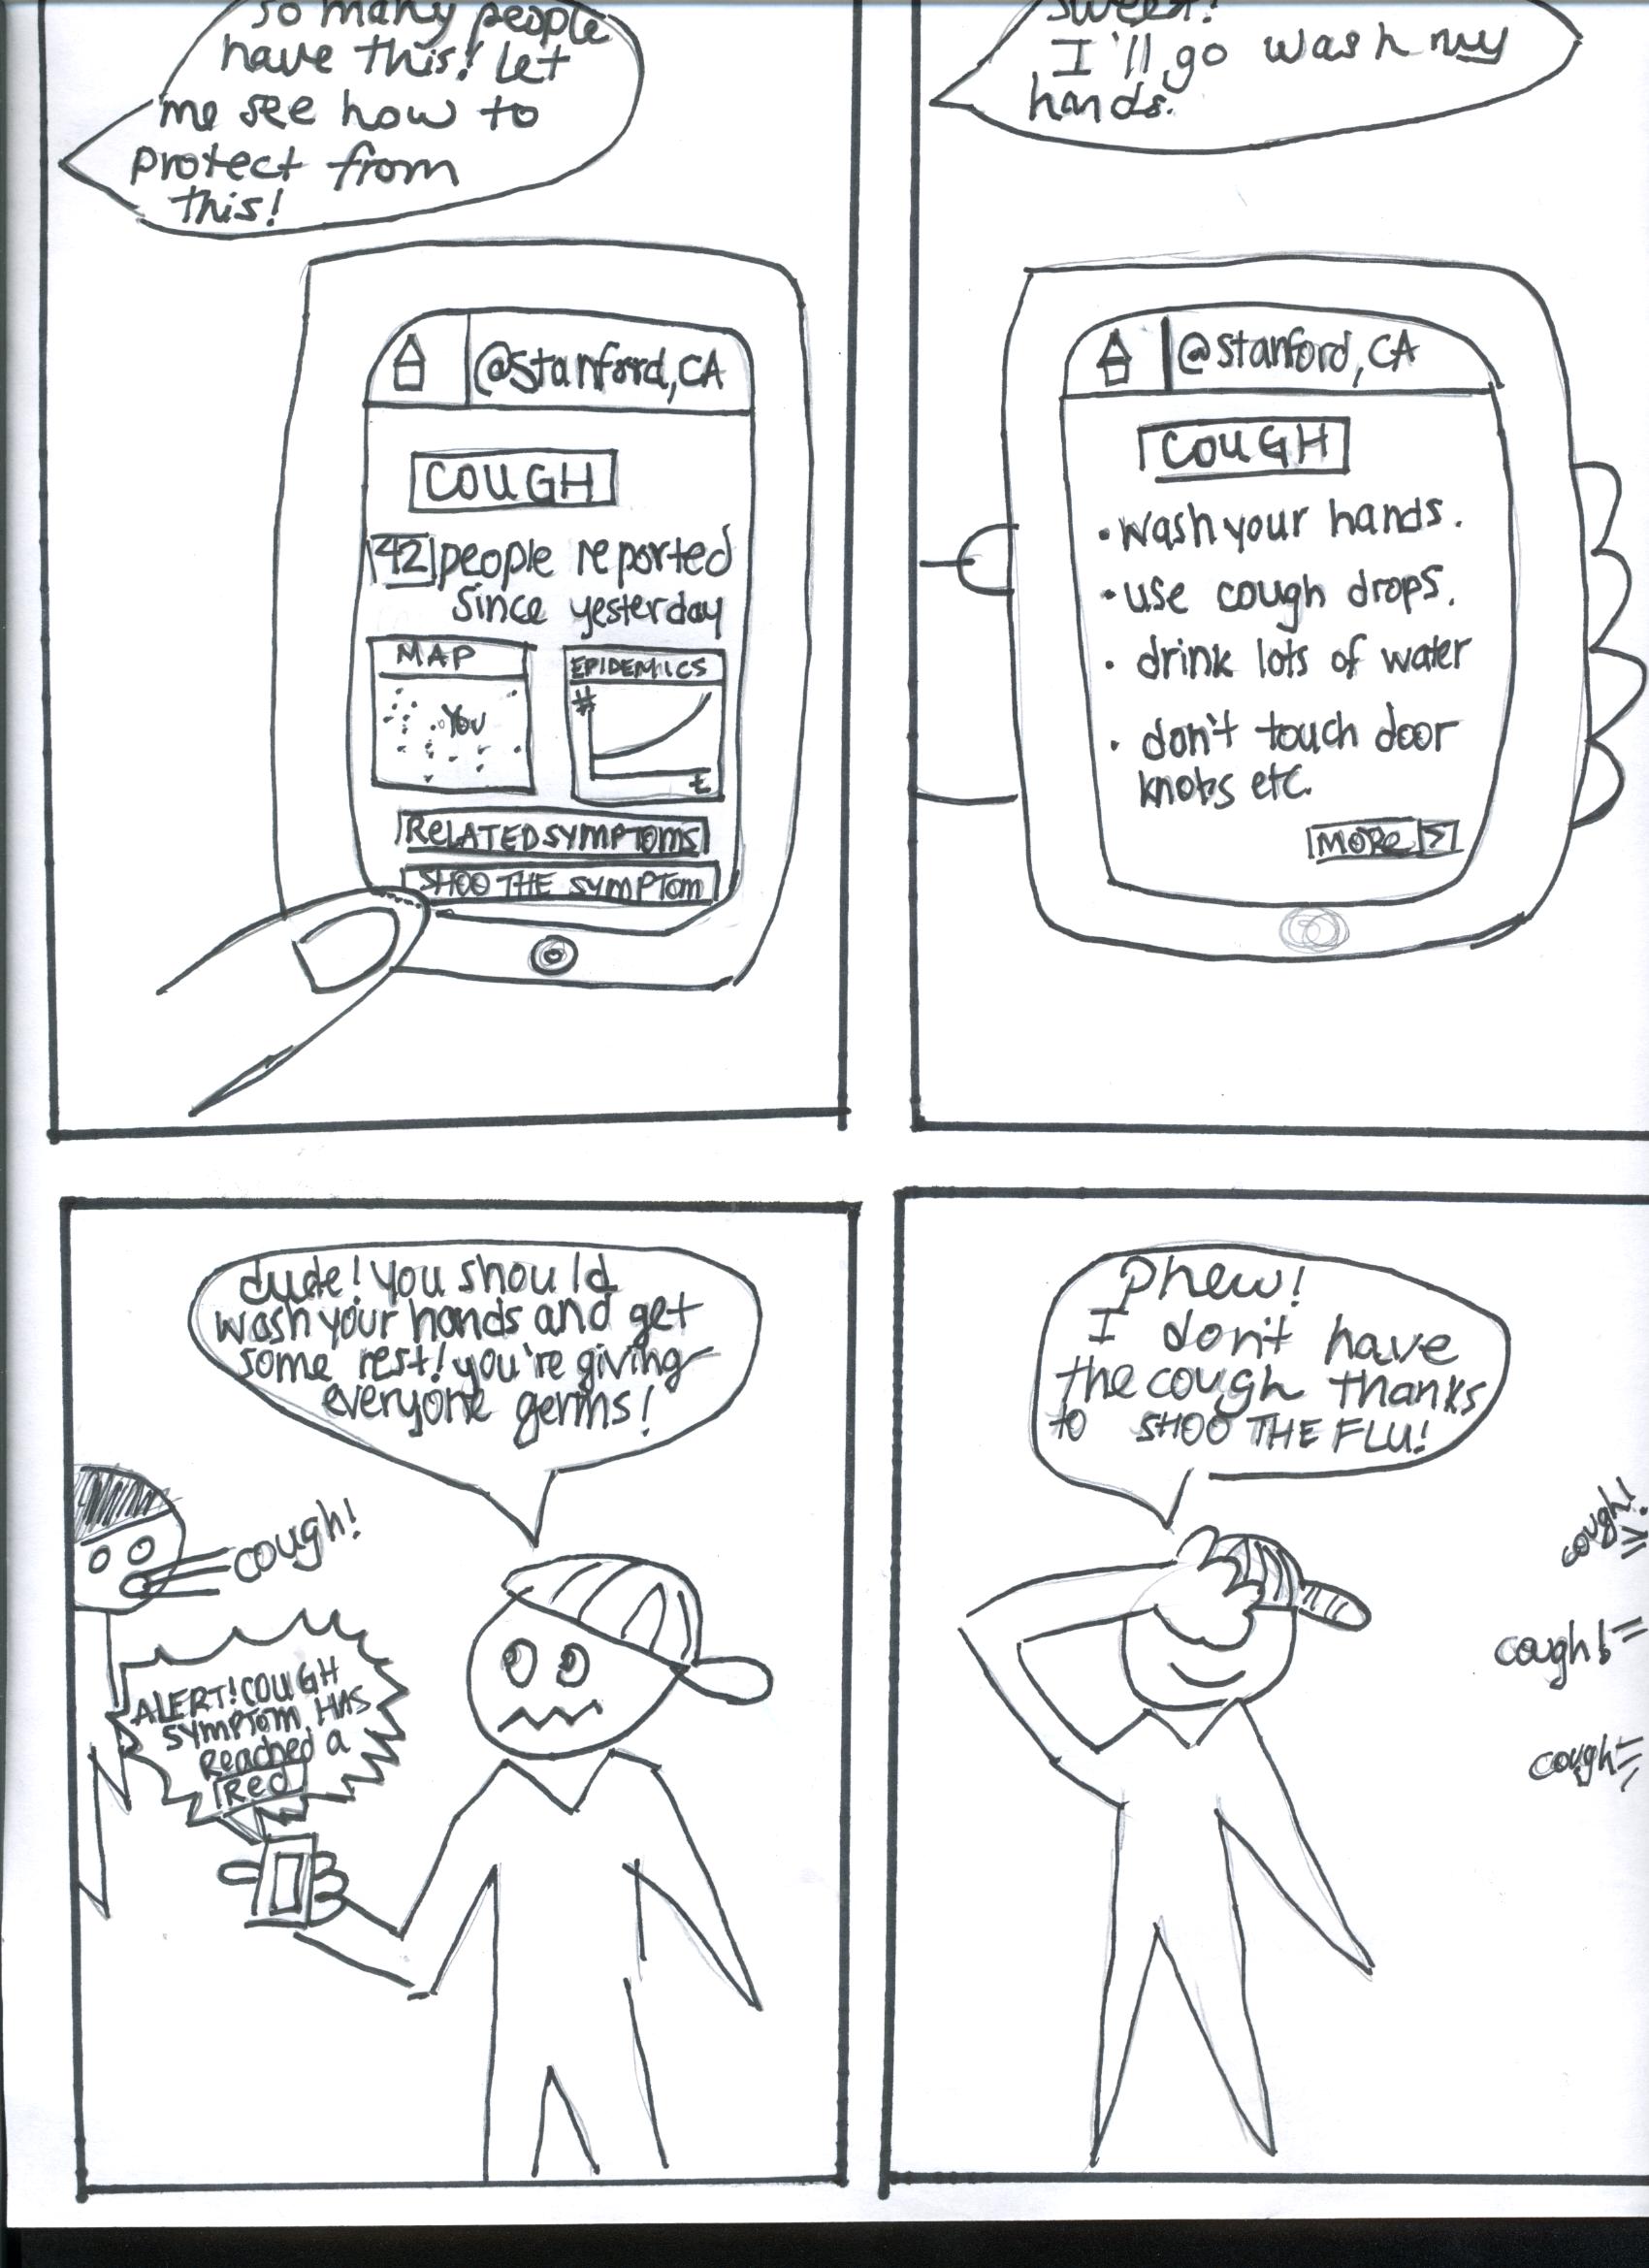 so many people
have this! let
me see how to
protect from
this!
@stanford, CA
COUGH
42 people reported
since yesterday
MAP
You
EPIDEMICS
#
t
RELATED SYMPTOMS
SHOO THE SYMPTOM
sweet!
I'll go wash my
hands.
@stanford, CA
COUGH
• wash your hands.
• use cough drops.
• drink lots of water
• don't touch door
knobs etc.
MORE >
dude! you should
wash your hands and get
some rest! you're giving
everyone germs!
cough!
ALERT! COUGH
SYMPTOM HAS
Reached a
Red
Phew!
I don't have
the cough thanks
to SHOO THE FLU!
cough!
cough!
cough